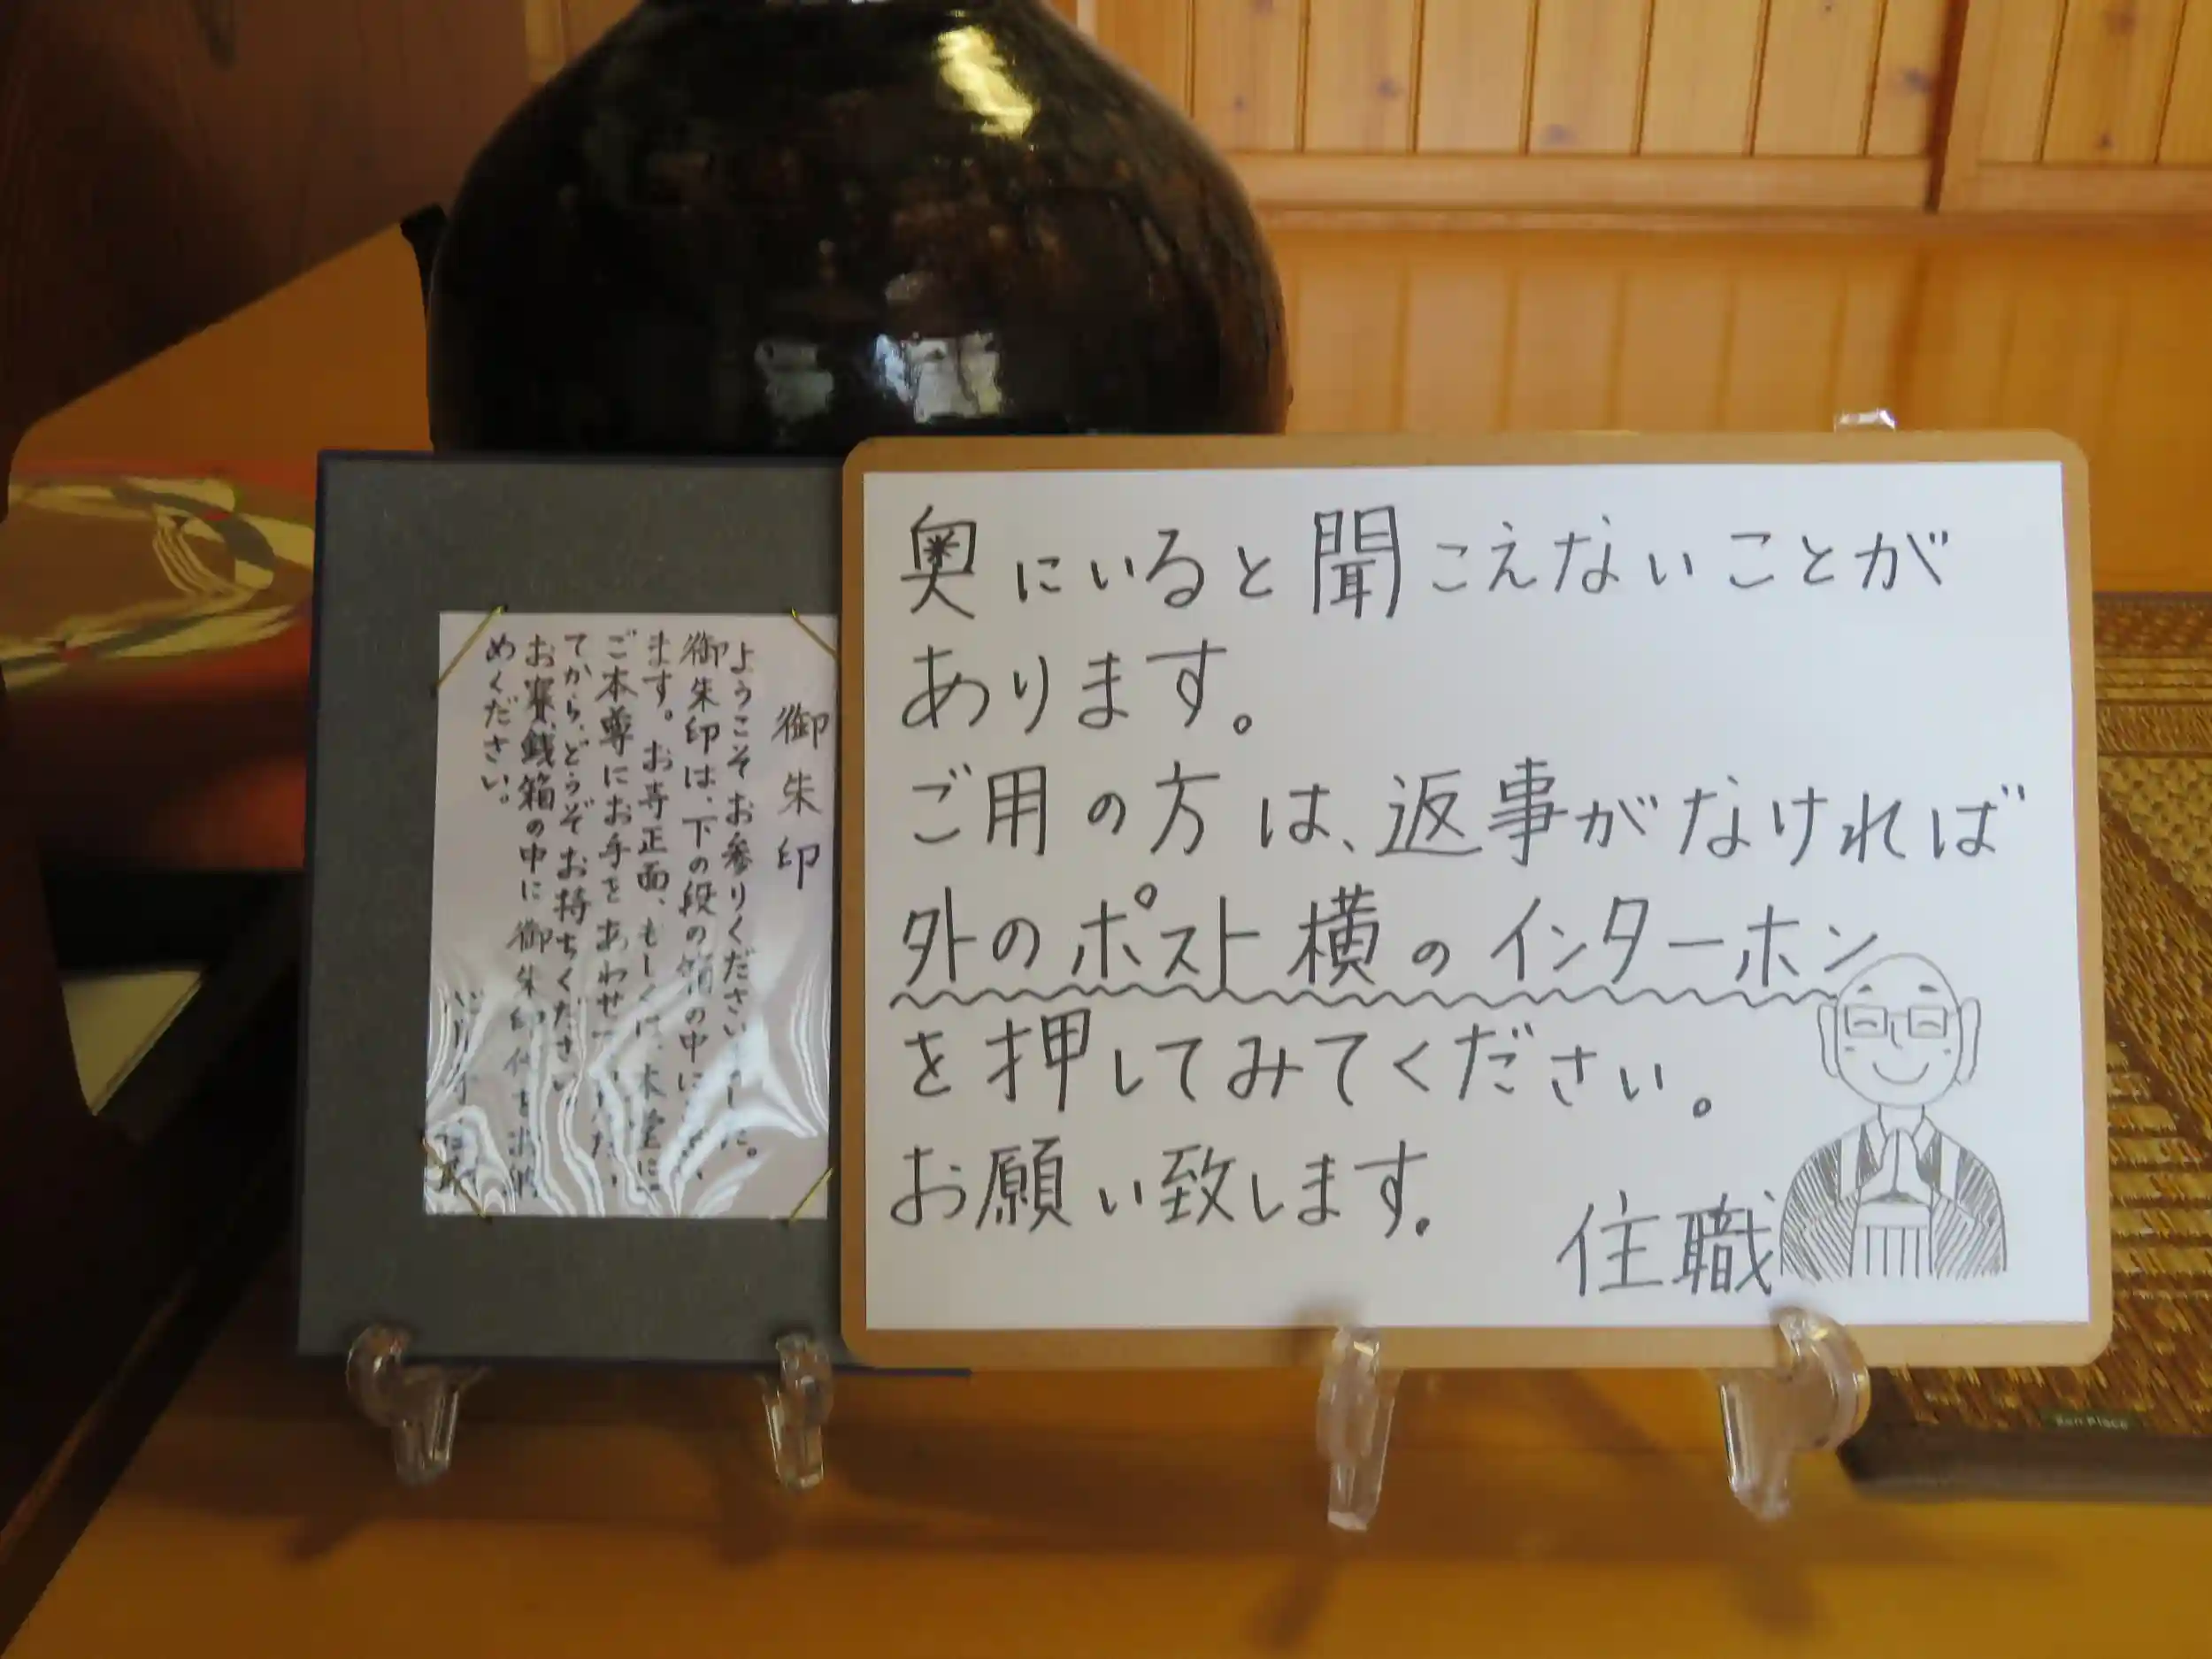 御朱印
ようこそお参りくださいました。
御朱印は、下の段の箱の中に
ます。お寺正面、もしくは、本堂に
ご本尊にお手をあわせて
てから、どうぞお持ちください
お賽銭箱の中に御朱印代をお納
めください。
奥にいると聞こえないことが
あります。
ご用の方は、返事がなければ
外のポスト横のインターホン
を押してみてください。
お願い致します。
住職